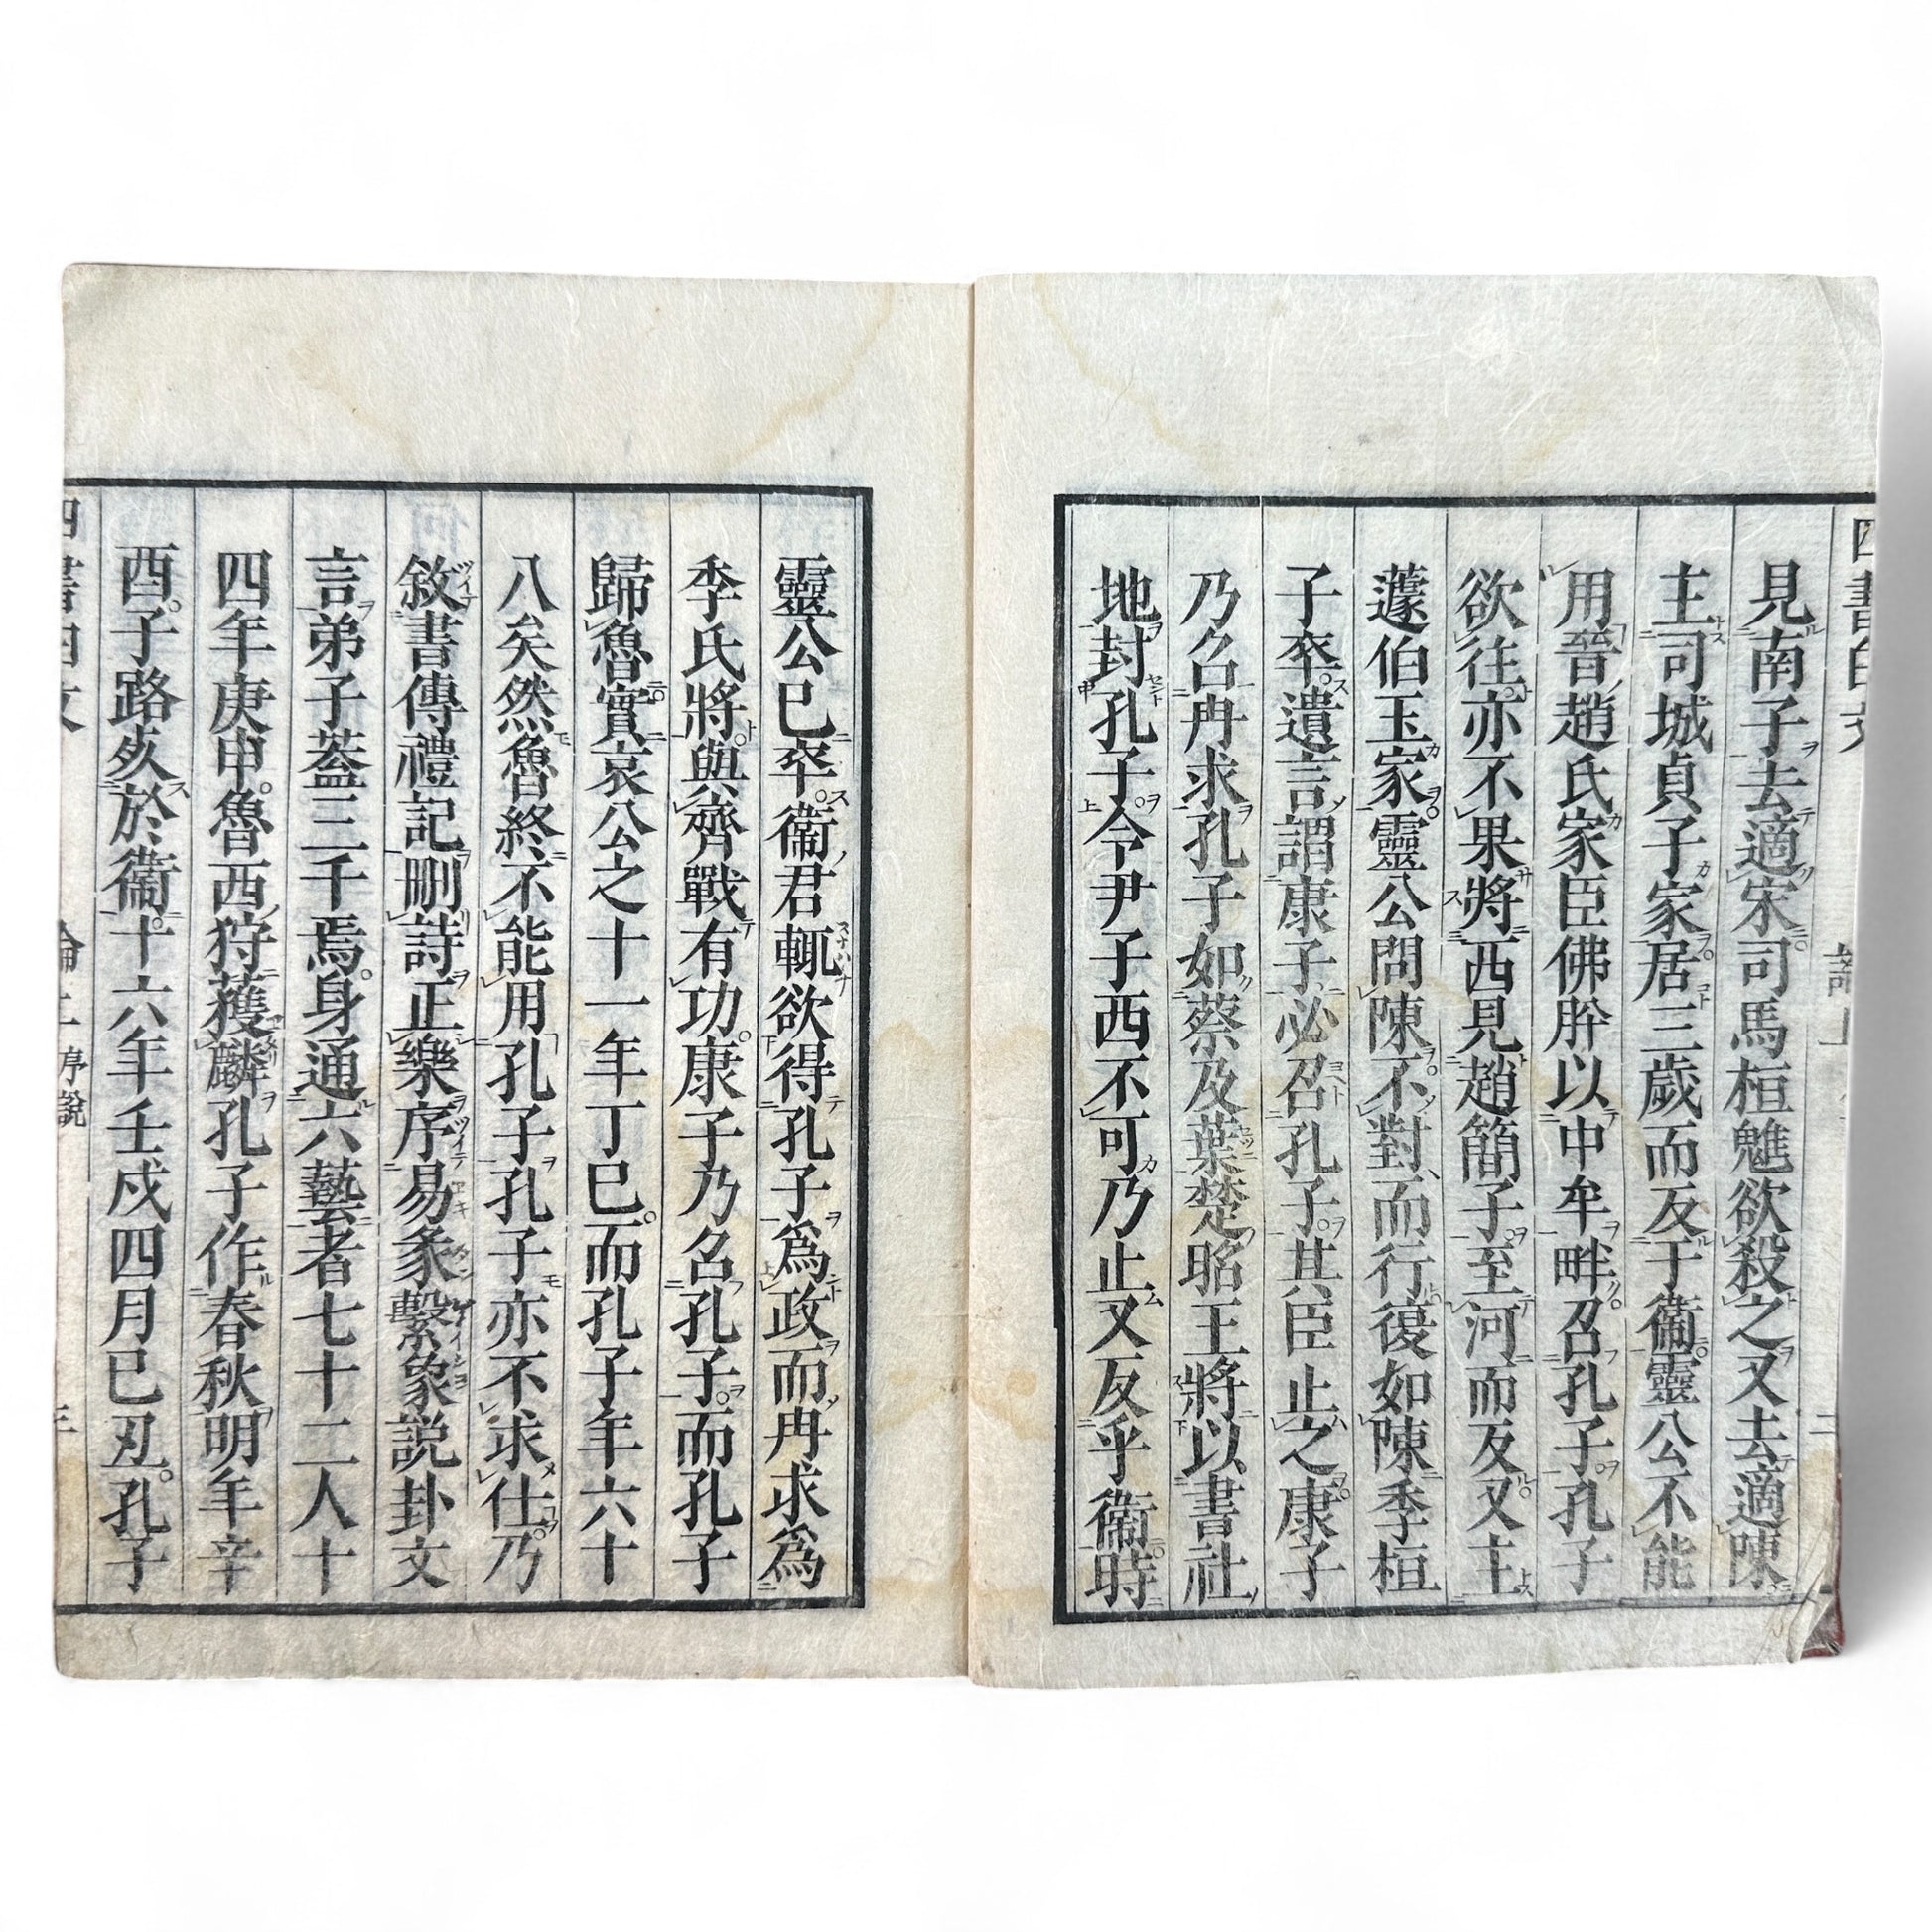 見南子去適宋司馬桓魋欲殺之又去適陳
主司城貞子家居三歲而反于衞靈公不能
用晉趙氏家臣佛肸以中牟畔召孔子孔子
欲往亦不果將西見趙簡子至河而反又主
蘧伯玉家靈公問陳不對而行復如陳季桓
子卒遺言謂康子必召孔子其臣止之康子
乃召冉求孔子如蔡及葉楚昭王將以書社
地封孔子令尹子西不可乃止又反乎衞時
靈公已卒衞君輒欲得孔子爲政而冉求爲
季氏將與齊戰有功康子乃召孔子而孔子
歸魯實哀公之十一年丁巳而孔子年六十
八矣然魯終不能用孔子孔子亦不求仕乃
敘書傳禮記刪詩正樂序易彖繫象說卦文
言弟子蓋三千焉身通六藝者七十二人十
四年庚申魯西狩獲麟孔子作春秋明年辛
酉子路死於衞十六年壬戌四月己丑孔子
四書白文 論上序說 三